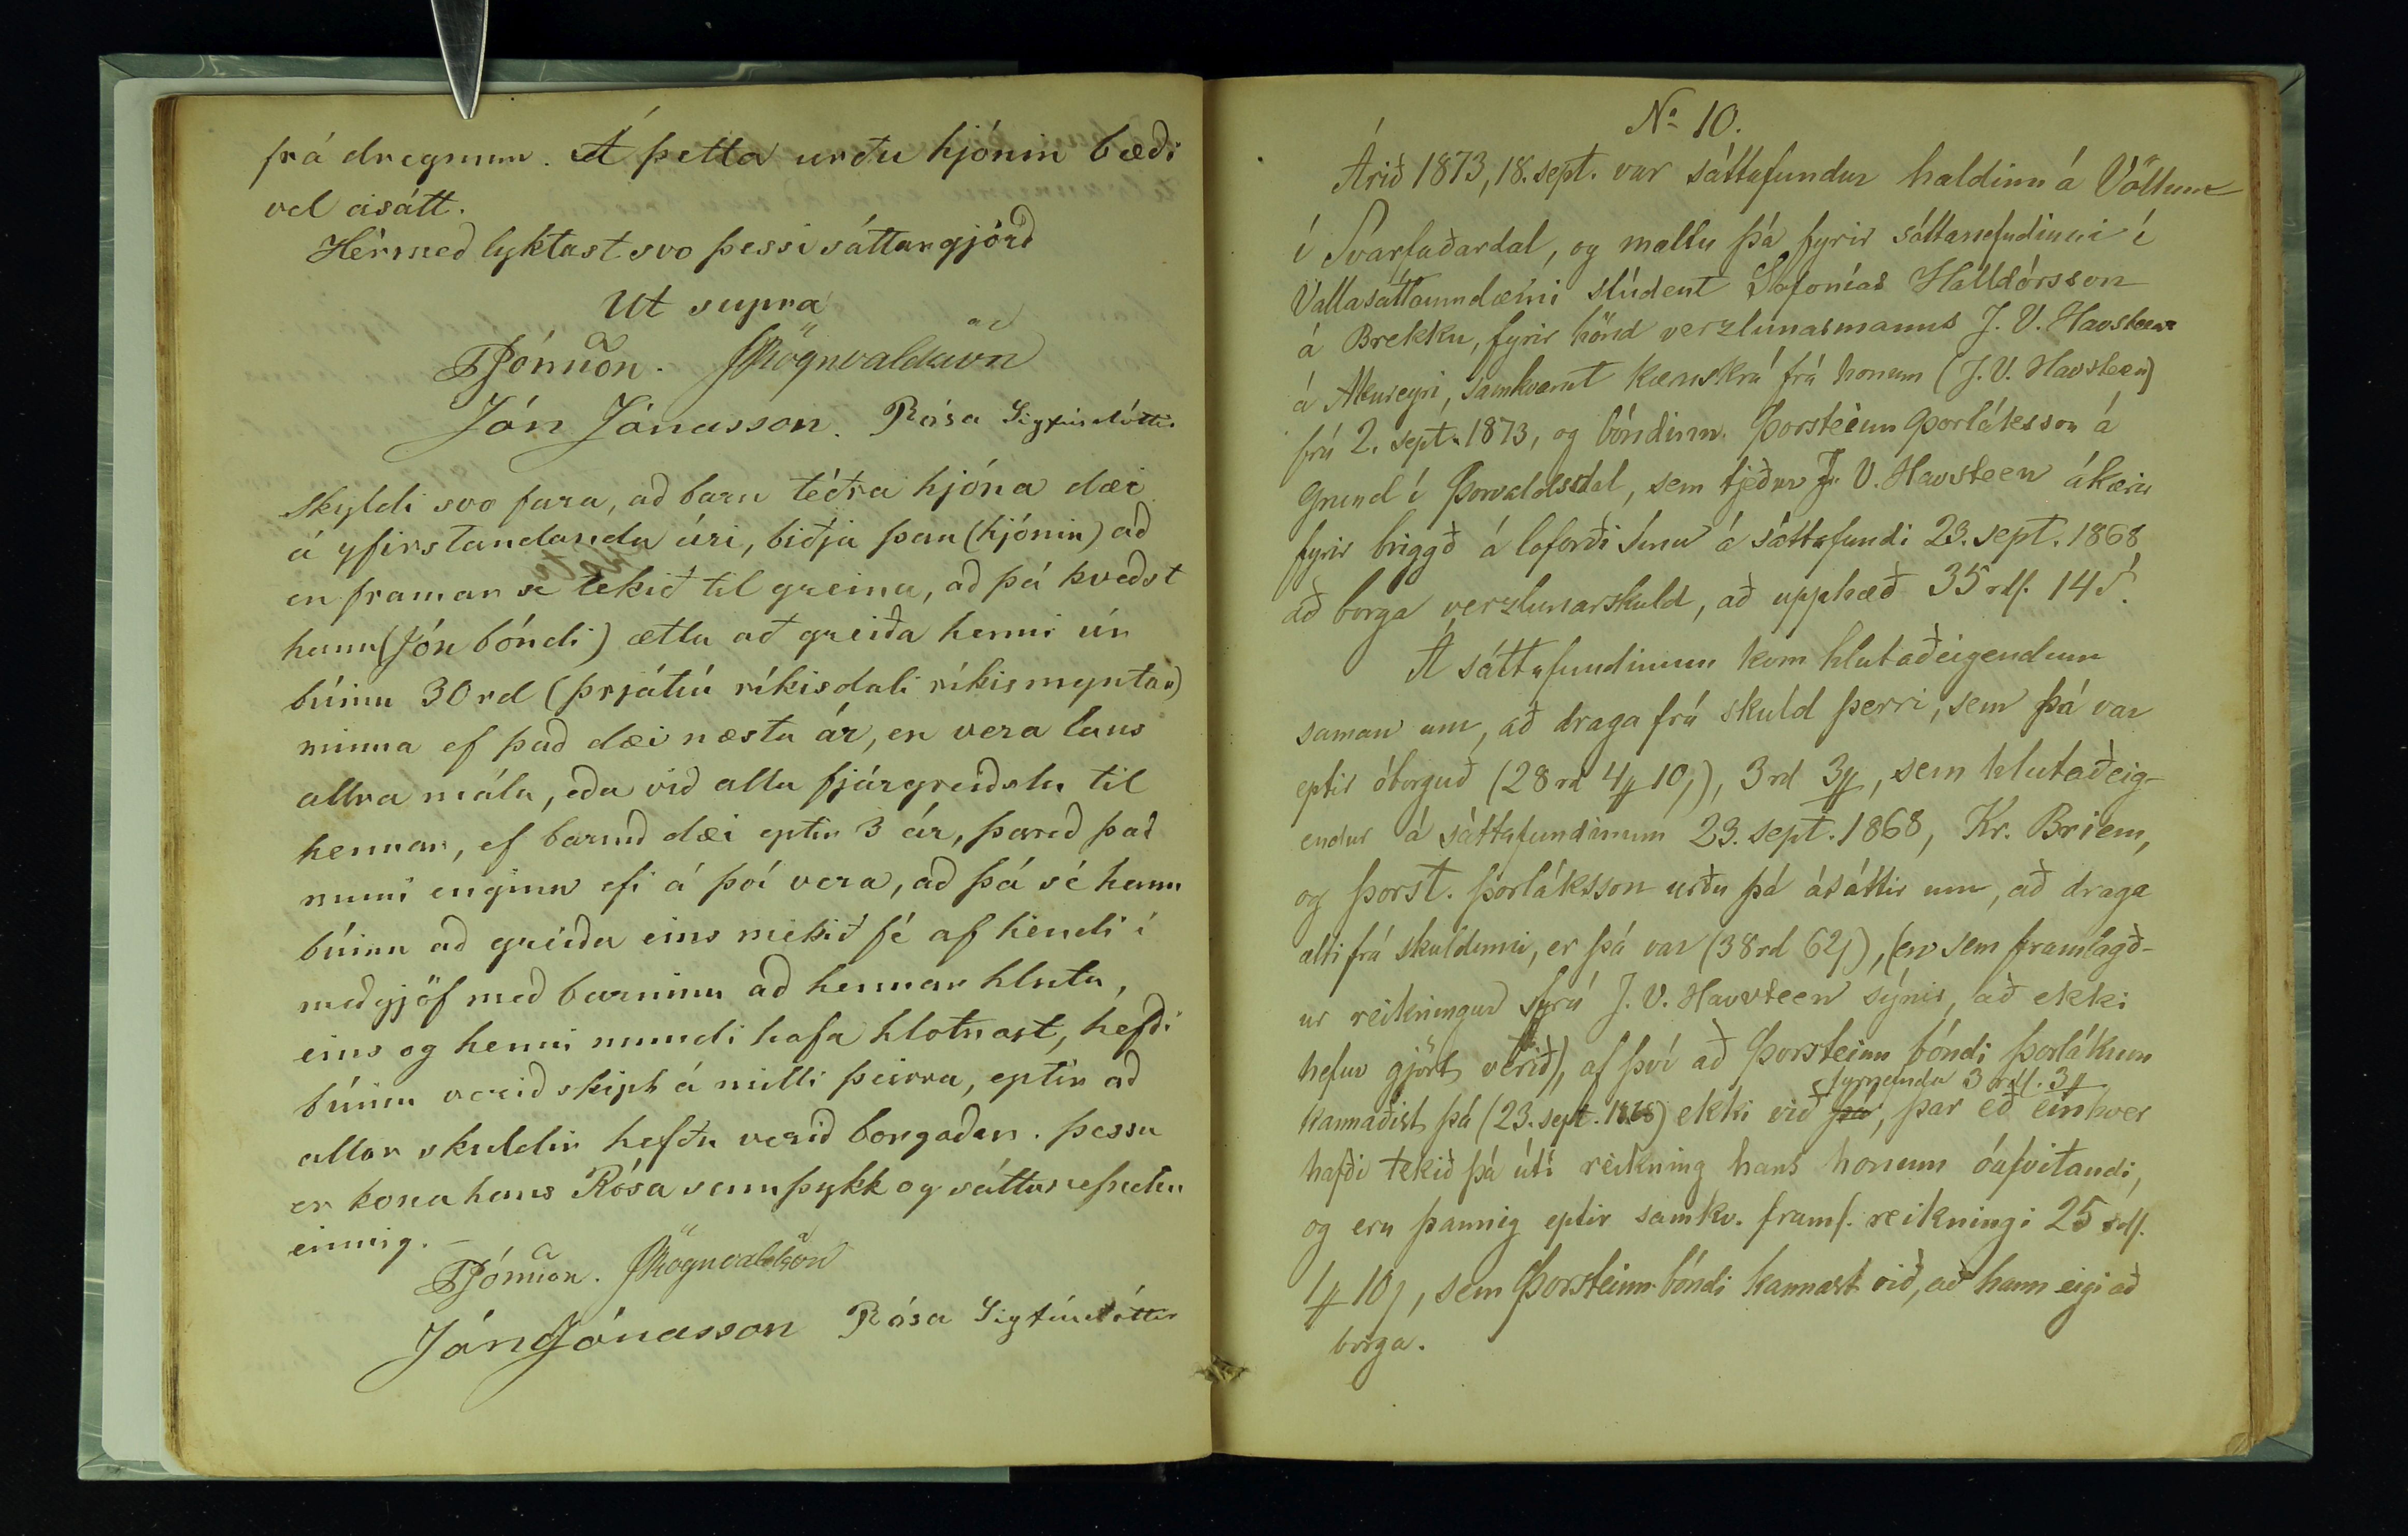 frá dregnum. Á þetta urðu hjónin bæði
vel ásátt.
Hérmeð lyktast svo þessi sáttargjörð
Ut supra
PJónsson. JRögnvaldsson
Jón Jónasson. Rósa Sigfúsdóttir
Skyldi svo fara, að barn téðra hjóna dæi
á yfirstandandi ári, biðja þau (hjónin) að
en framar sé tekið til greina, að þá kveðst
hann (Jón bóndi) ætla að greiða henni úr
búinu 30 rd (þrjátíu ríkisdali ríkismyntar)
minna ef það dæi næsta ár, en vera laus
allra mála, eða við alla fjárgreiðslu til
hennar, ef barnið dæi eptir 3 ár, þareð það
muni enginn efi á því vera, að þá sé hann
búinn að greiða eins mikið fé af hendi í
meðgjöf með barninu að hennar hluta,
eins og henni mundi hafa hlotnast, hefði
búinu verið skipt á milli þeirra, eptir að
allar skuldir hefðu verið borgaðar. þessu
er kona hans Rósa samþykk og sáttanefndin
einnig. –
PJónsson. JRögnvaldsson
Jón Jónasson Rósa Sigfúsdóttir
No 10.
Árið 1873, 18. sept. var sáttafundur haldinn á Völlum
í Svarfaðardal, og mættu þá fyrir sáttanefndinni í
Vallasáttaumdæmi stúdent Sofonías Halldórsson
á Brekku, fyrir hönd verzlunarmanns J. V. Havsteen
á Akureyri, samkvæmt kæruskrá frá honum (J. V. Havsteen)
frá 2. sept. 1873, og bóndinn Þorsteinn Þorláksson á
Grund í Þorvaldsdal, sem tjeður J. V. Havsteen ákærir
fyrir brigð á loforði sínu á sáttafundi 23. sept. 1868,
að borga verzlunarskuld, að upphæð 35 rdl. 14 s.
Á sáttafundinum kom hlutaðeigendum
saman um, að draga frá skuld þerri, sem þá var
eptir óborguð (28 rd 4 # 10 s), 3 rd 3 #, sem hlutaðeig-
endur á sáttafundinum 23. sept. 1868, Kr. Briem,
og Þorst. Þorláksson urðu þá ásáttir um, að draga
ætti frá skuldinni, er þá var (38 rd 62 s), (en sem framlagð-
ur reikningur frá J. V. Havsteen sýnir, að ekki
hefur gjört verið), af því að Þorsteinn bóndi Þorláksson
kannaðist þá (23. sept. 1868) ekki við þá, þar eð einhver
fyrnefndu 3 rdl. 3 #
hafði tekið þá útí reikning hans honum óafvitandi,
og eru þannig eptir samkv. framl. reikningi 25 rdl.
1 # 10 s, sem Þorsteinn bóndi kannast við, að hann eigi að
borga.